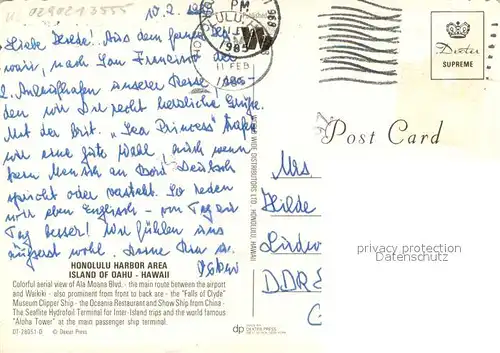 0290213555
10.2.
Liebe Aus dem
nach San Francisco
2. Anlaufhafen unserer Reise
wir Dir recht herzliche Grüße.
Mit der Brit. "Sea Princess" trafen
wir eine gute Wahl, auch wenn
kein Mensch an Bord Deutsch
spricht oder versteht. So reden
wir eben Englisch - von Tag zu
Tag besser! Wir fühlen uns
äußerst wohl.
PM
1985
11 FEB
Dexter
SUPREME
Post Card
Mrs.
Hilde
DDR
privacy protection
Datenschutz
WORLD WIDE DISTRIBUTORS LTD. - HONOLULU, HAWAII
HONOLULU HARBOR AREA
ISLAND OF OAHU - HAWAII
Colorful aerial view of Ala Moana Blvd. - the main route between the airport
and Waikiki - also prominent from front to back are - the "Falls of Clyde"
Museum Clipper Ship - the Oceania Restaurant and Show Ship from China -
The Seaflite Hydrofoil Terminal for Inter-Island trips and the world famous
"Aloha Tower" at the main passenger ship terminal.
DT-28051-D © Dexter Press
dp DEXTER PRESS